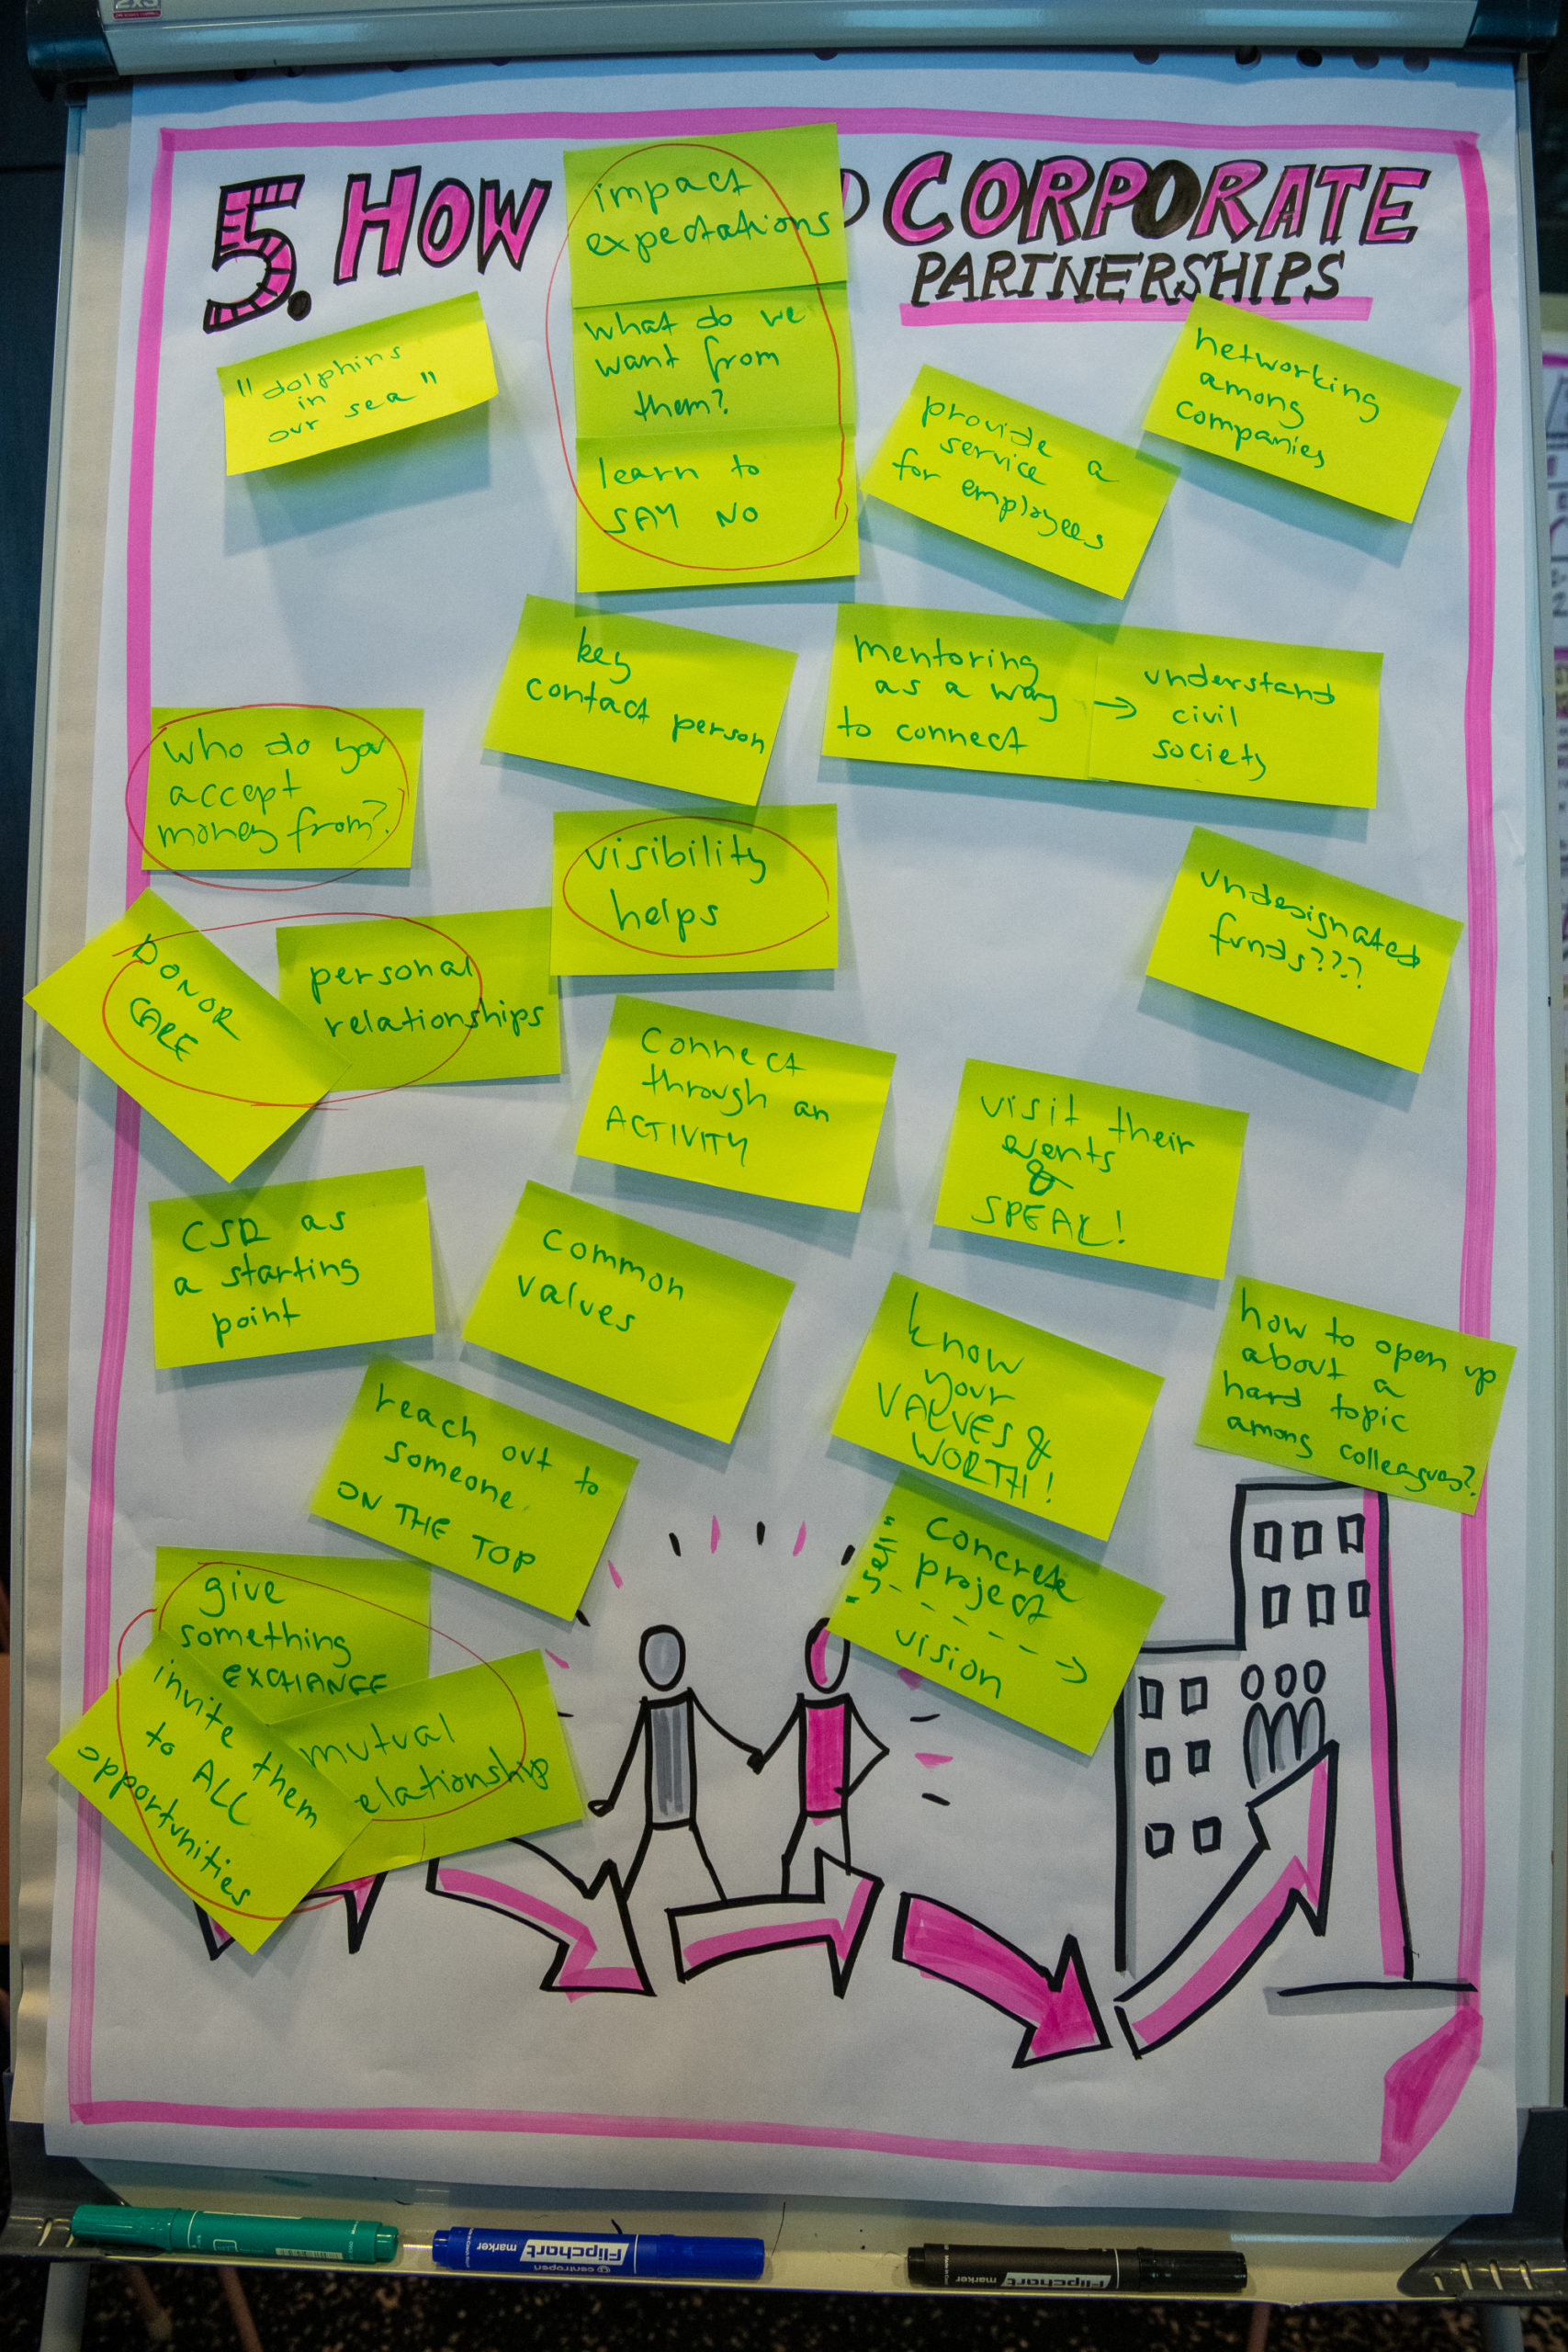 5. HOW
CORPORATE
PARTNERSHIPS
impact
expectations
what do we
want from
them?
learn to
SAY NO
"dolphins
in
our sea"
provide a
service
for employees
networking
among
companies
key
contact person
mentoring
as a way
to connect
→ understand
civil
society
who do you
accept
money from?
visibility
helps
undesignated
funds???
DONOR
CARE
personal
relationships
Connect
through an
ACTIVITY
visit their
events
&
SPEAK!
CSR as
a starting
point
common
values
know
your
VALUES &
WORTH!
how to open up
about a
hard topic
among colleagues?
reach out to
someone
ON THE TOP
"sell"
concrete
project
----→
vision
give
something
EXCHANGE
invite them
to ALL
opportunities
mutual
elationship
Flipchart
marker
centropen
Flipchart
marker